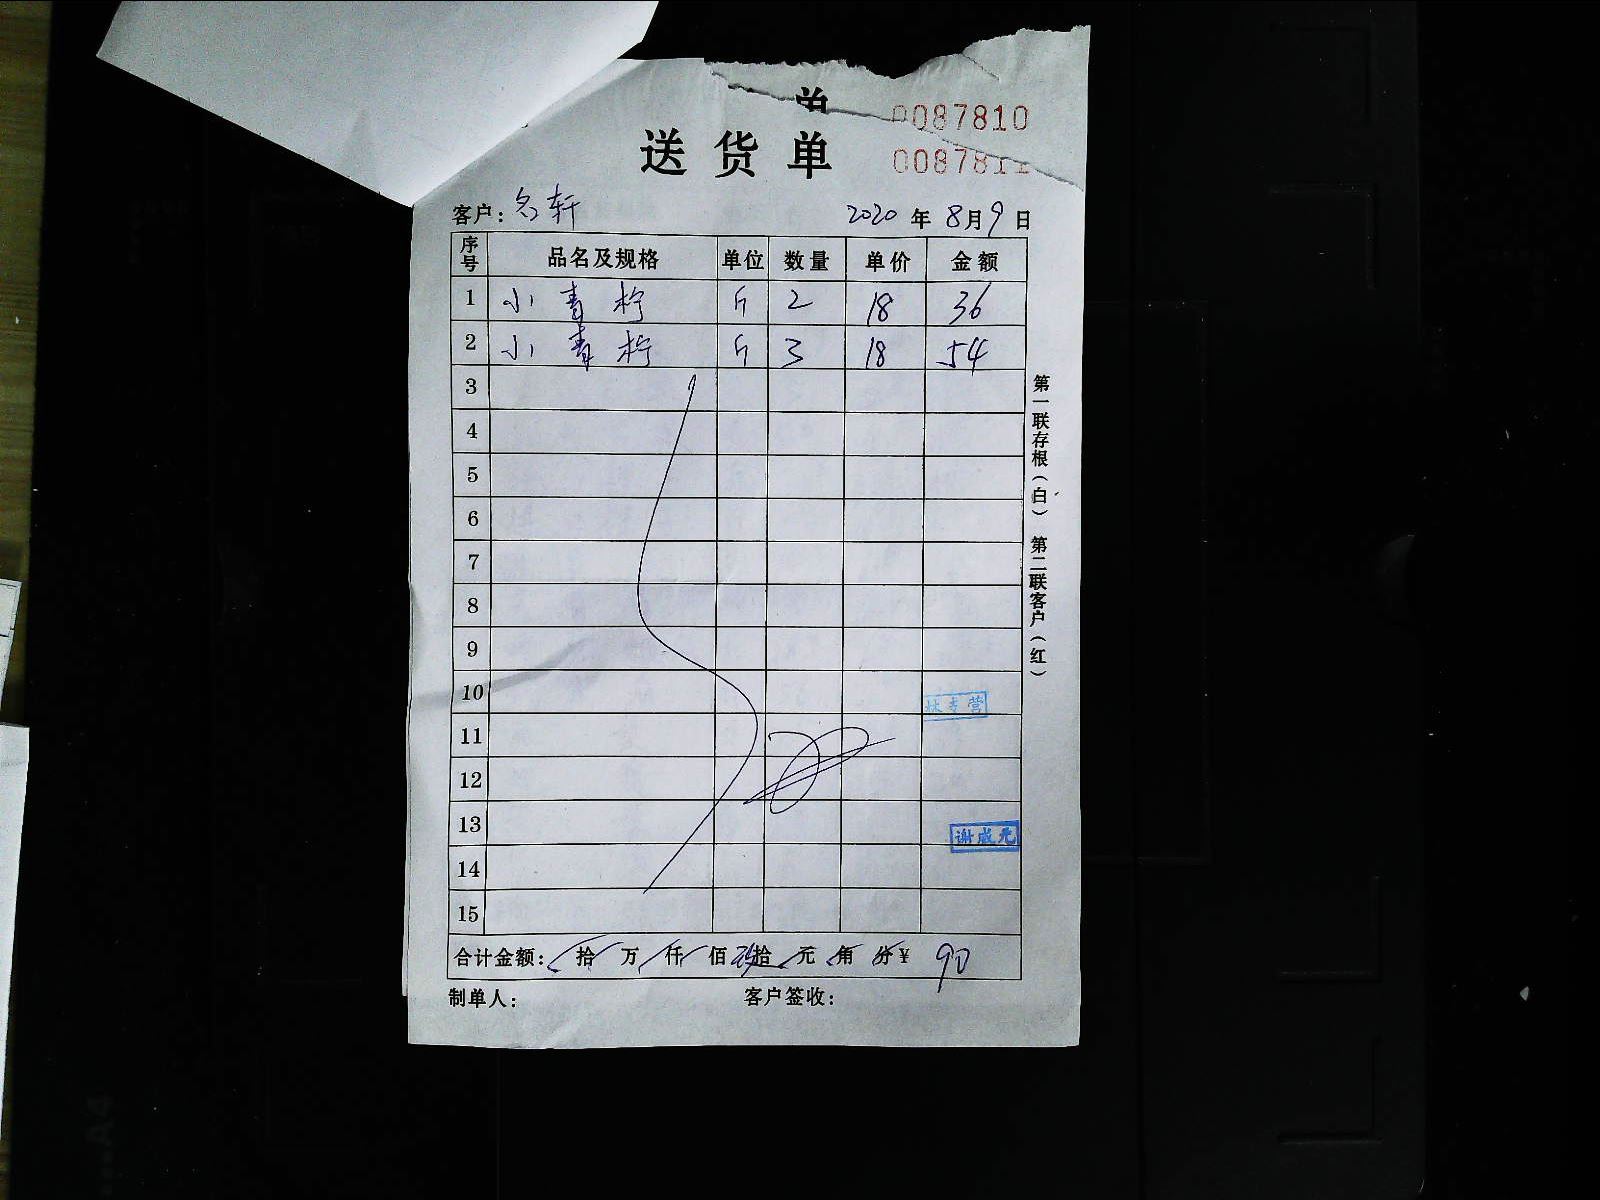 单 0087810
送货单 0087811
客户: 名轩 2020 年 8月9日
序号 品名及规格 单位 数量 单价 金额
1 小青柠 斤 2 18 36
2 小青柠 斤 3 18 54
3
4
5
6
7
8
9
10
林专营
11
12
13
谢成元
14
15
合计金额: 拾 万 仟 佰 玖拾 元 角 分 ¥ 90
制单人: 客户签收:
第一联存根(白) 第二联客户(红)
A4